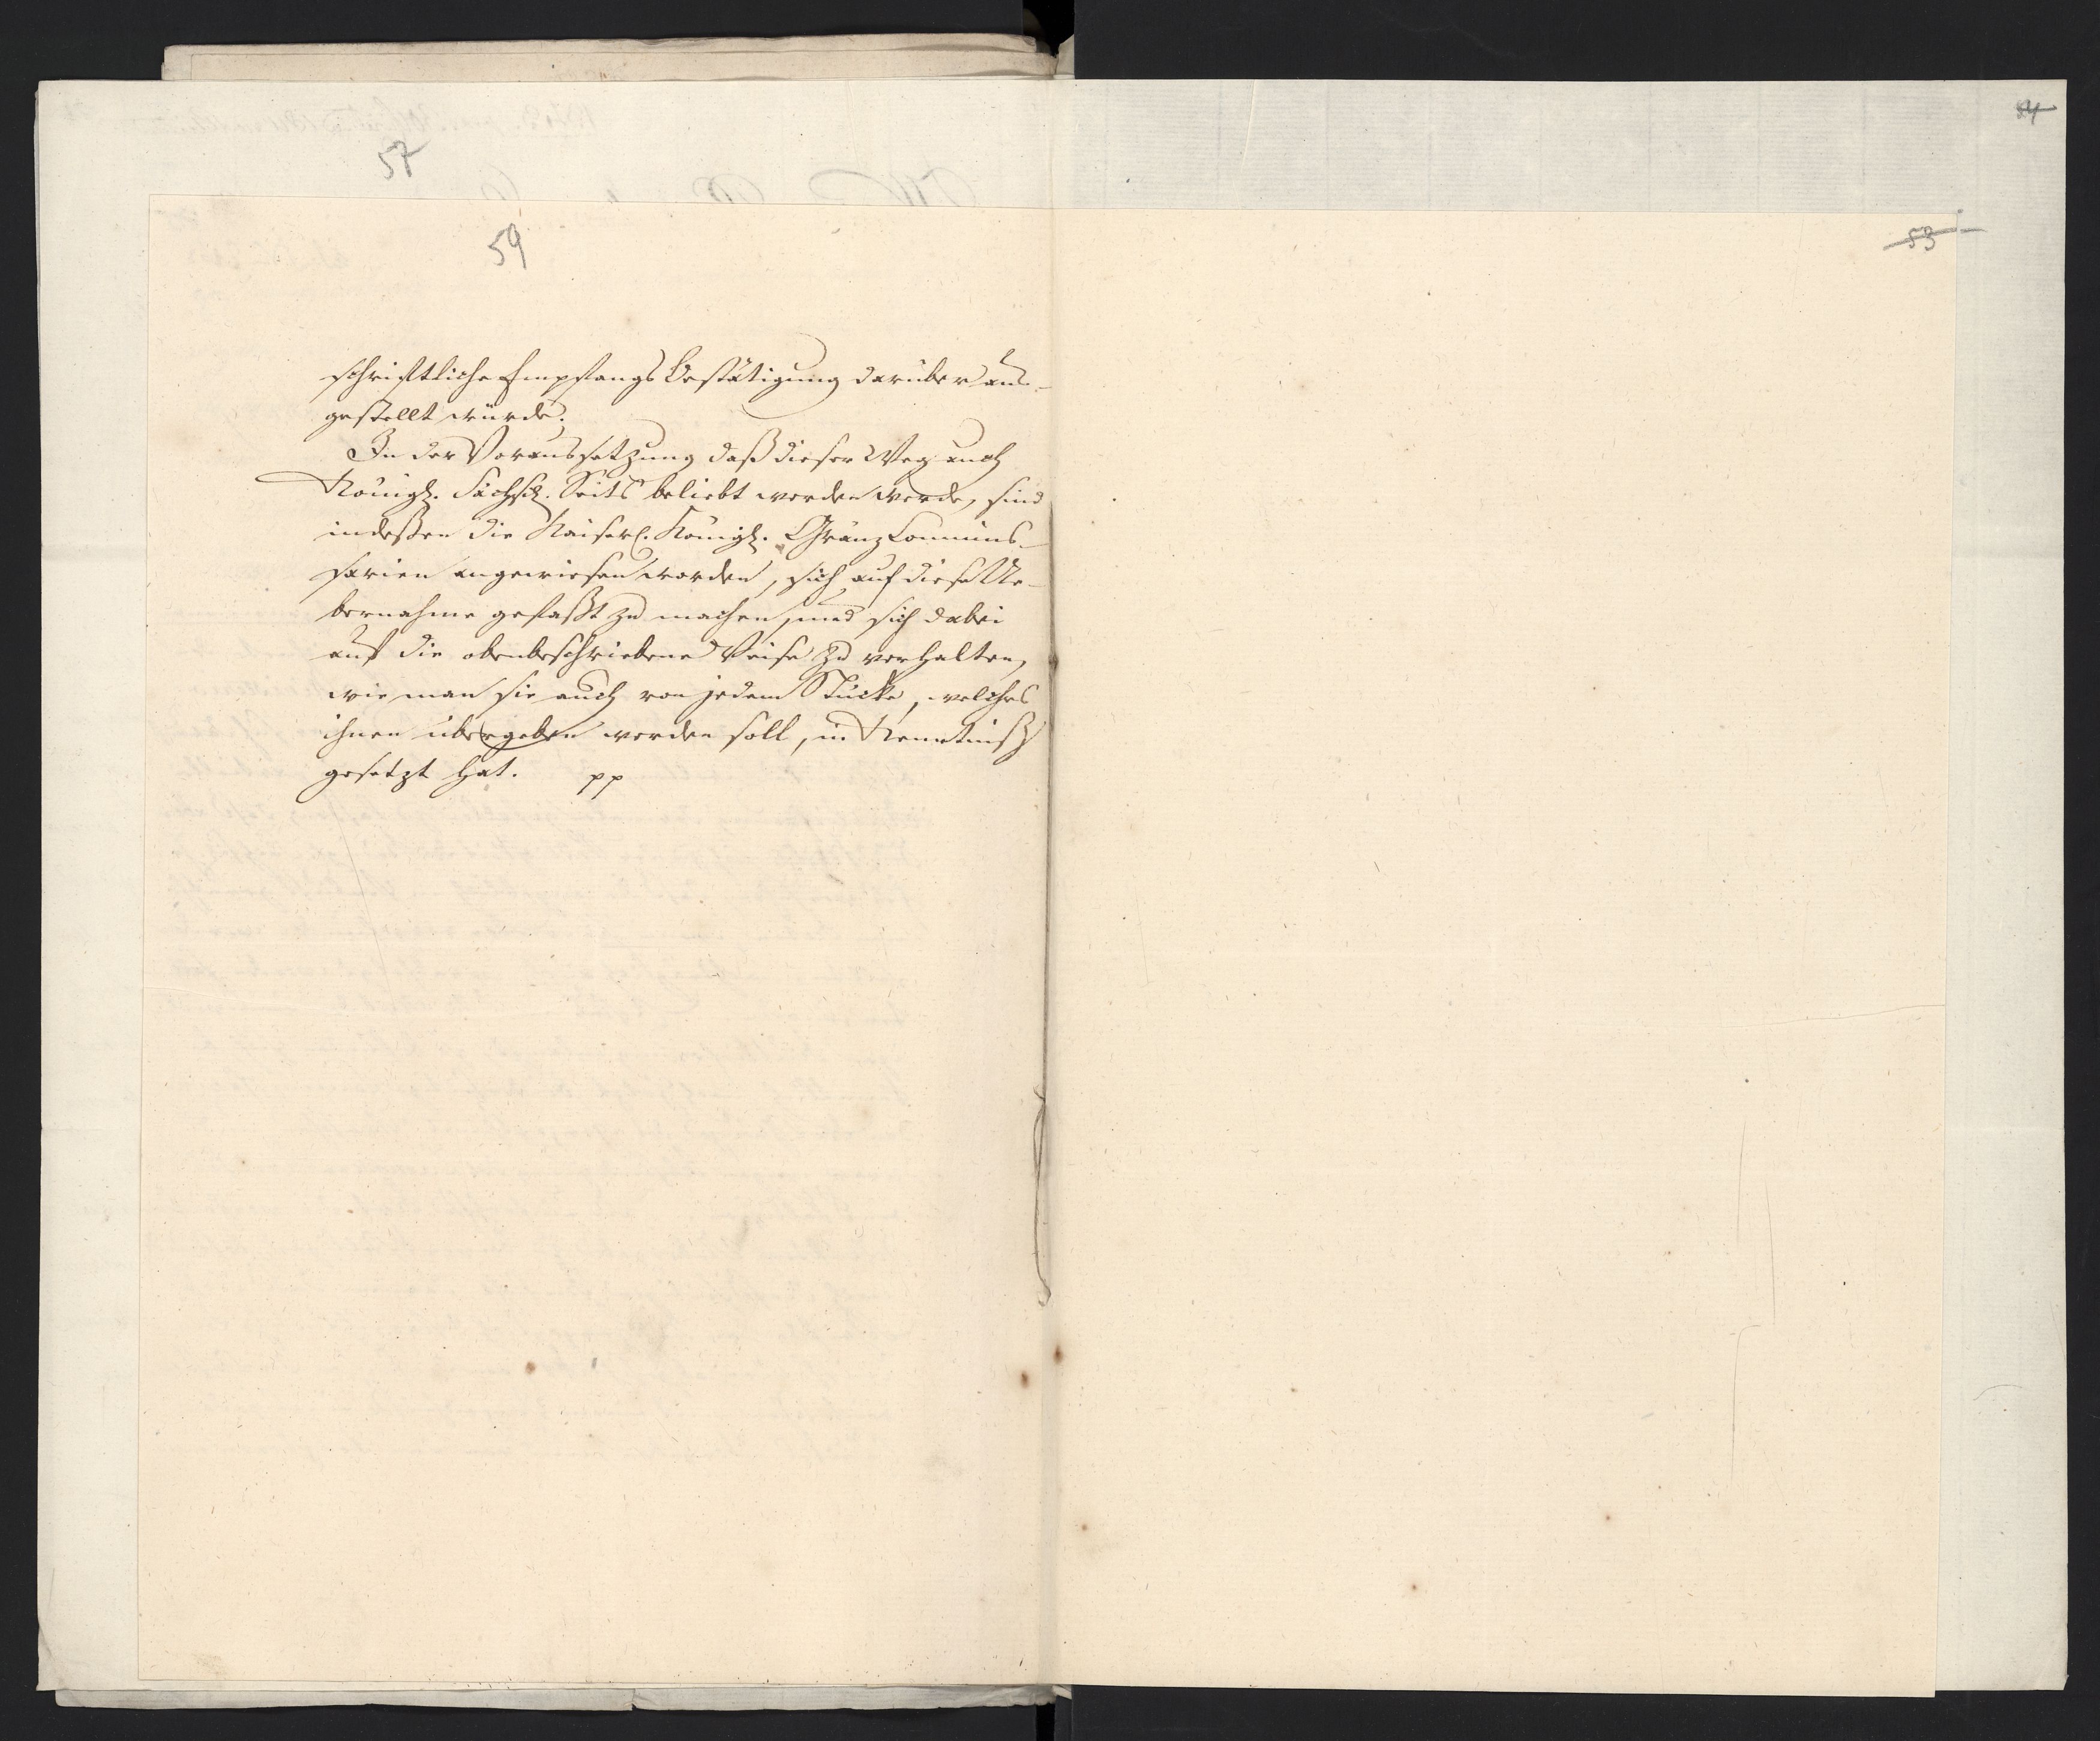 57
59
schriftliche Empfangs Bestätigung darüber aus-
gestellt würde.
In der Voraussetzung daß dieser Weg auch
Königl. Sächsl. Seits beliebt werden werde, sind
indeßen die Kaiserl. Königl. Gränz Commis-
sarien angewiesen worden, sich auf diese Ue-
bernahme gefaßt zu machen, und sich dabei
auf die obenbeschriebene Weise zu verhalten,
wie man sie auch von jedem Stücke, welches
ihnen übergeben werden soll, in Kenntniß
gesetzt hat. pp
54
53